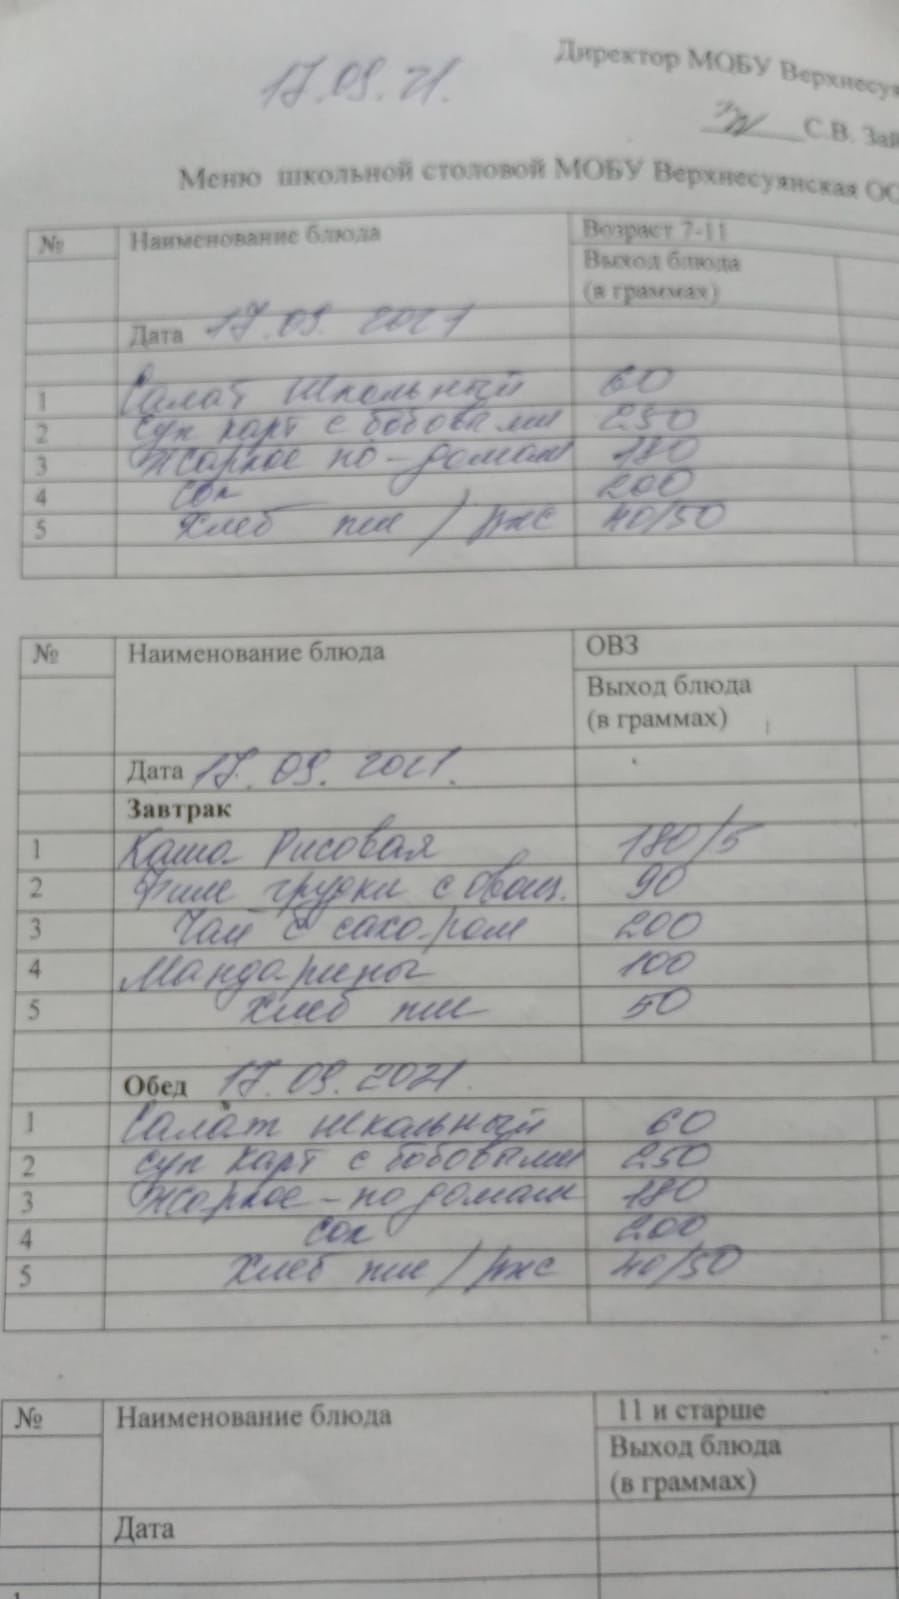 17.09.21.
Директор МОБУ Верхнесуя
С.В. Зай
Меню школьной столовой МОБУ Верхнесуянская ОО
№ Наименование блюда Возраст 7-11
Выход блюда
(в граммах)
Дата 17.09.2021
1 Салат Школьный 60
2 Суп карт с бобовыми 250
3 Жаркое по-домаш 180
4 Сок 200
5 Хлеб пше / ржс 40/50
№ Наименование блюда ОВЗ
Выход блюда
(в граммах)
Дата 17.09.2021.
Завтрак
1 Каша Рисовая 180/5
2 Филе грудки с овощ. 90
3 Чай с сахаром 200
4 Мандарины 100
5 Хлеб пше 50
Обед 17.09.2021.
1 Салат школьный 60
2 суп карт с бобовыми 250
3 Жаркое-по домаш 180
4 Сок 200
5 Хлеб пше / ржс 40/50
№ Наименование блюда 11 и старше
Выход блюда
(в граммах)
Дата